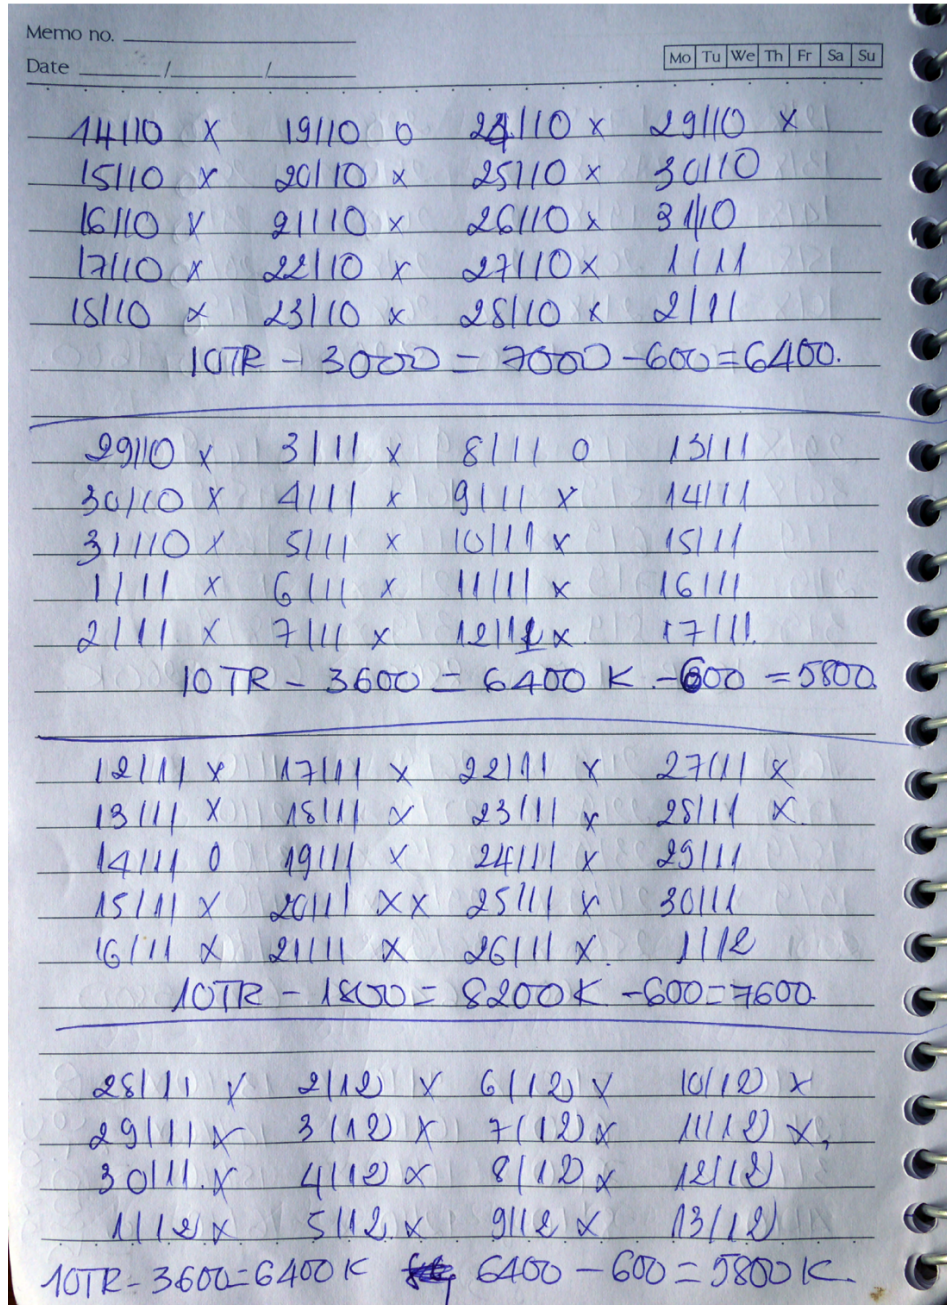 Memo no.
Mo Tu We Th Fr Sa Su
Date / /
14/10 x 19/10 0 24/10 x 29/10 x
15/10 x 20/10 x 25/10 x 30/10
16/10 x 21/10 x 26/10 x 31/10
17/10 x 22/10 x 27/10 x 1/11
18/10 x 23/10 x 28/10 x 2/11
10TR - 3000 = 7000 - 600 = 6400.
29/10 x 3/11 x 8/11 0 13/11
30/10 x 4/11 x 9/11 x 14/11
31/10 x 5/11 x 10/11 x 15/11
1/11 x 6/11 x 11/11 x 16/11
2/11 x 7/11 x 12/11 x. 17/11.
10TR - 3600 = 6400 K - 600 = 5800
12/11 x 17/11 x 22/11 x 27/11 x
13/11 x 18/11 x 23/11 x 28/11 x.
14/11 0 19/11 x 24/11 x 29/11
15/11 x 20/11 xx 25/11 x 30/11
16/11 x 21/11 x 26/11 x. 1/12
10TR - 1800 = 8200K - 600 = 7600.
28/11 x 2/12 x 6/12 x 10/12 x
29/11 x 3/12 x 7/12 x 11/12 x,
30/11.x 4/12 x 8/12 x 12/12
1/12 x 5/12 x 9/12 x 13/12
10TR - 3600 = 6400K 6400 - 600 = 5800K.